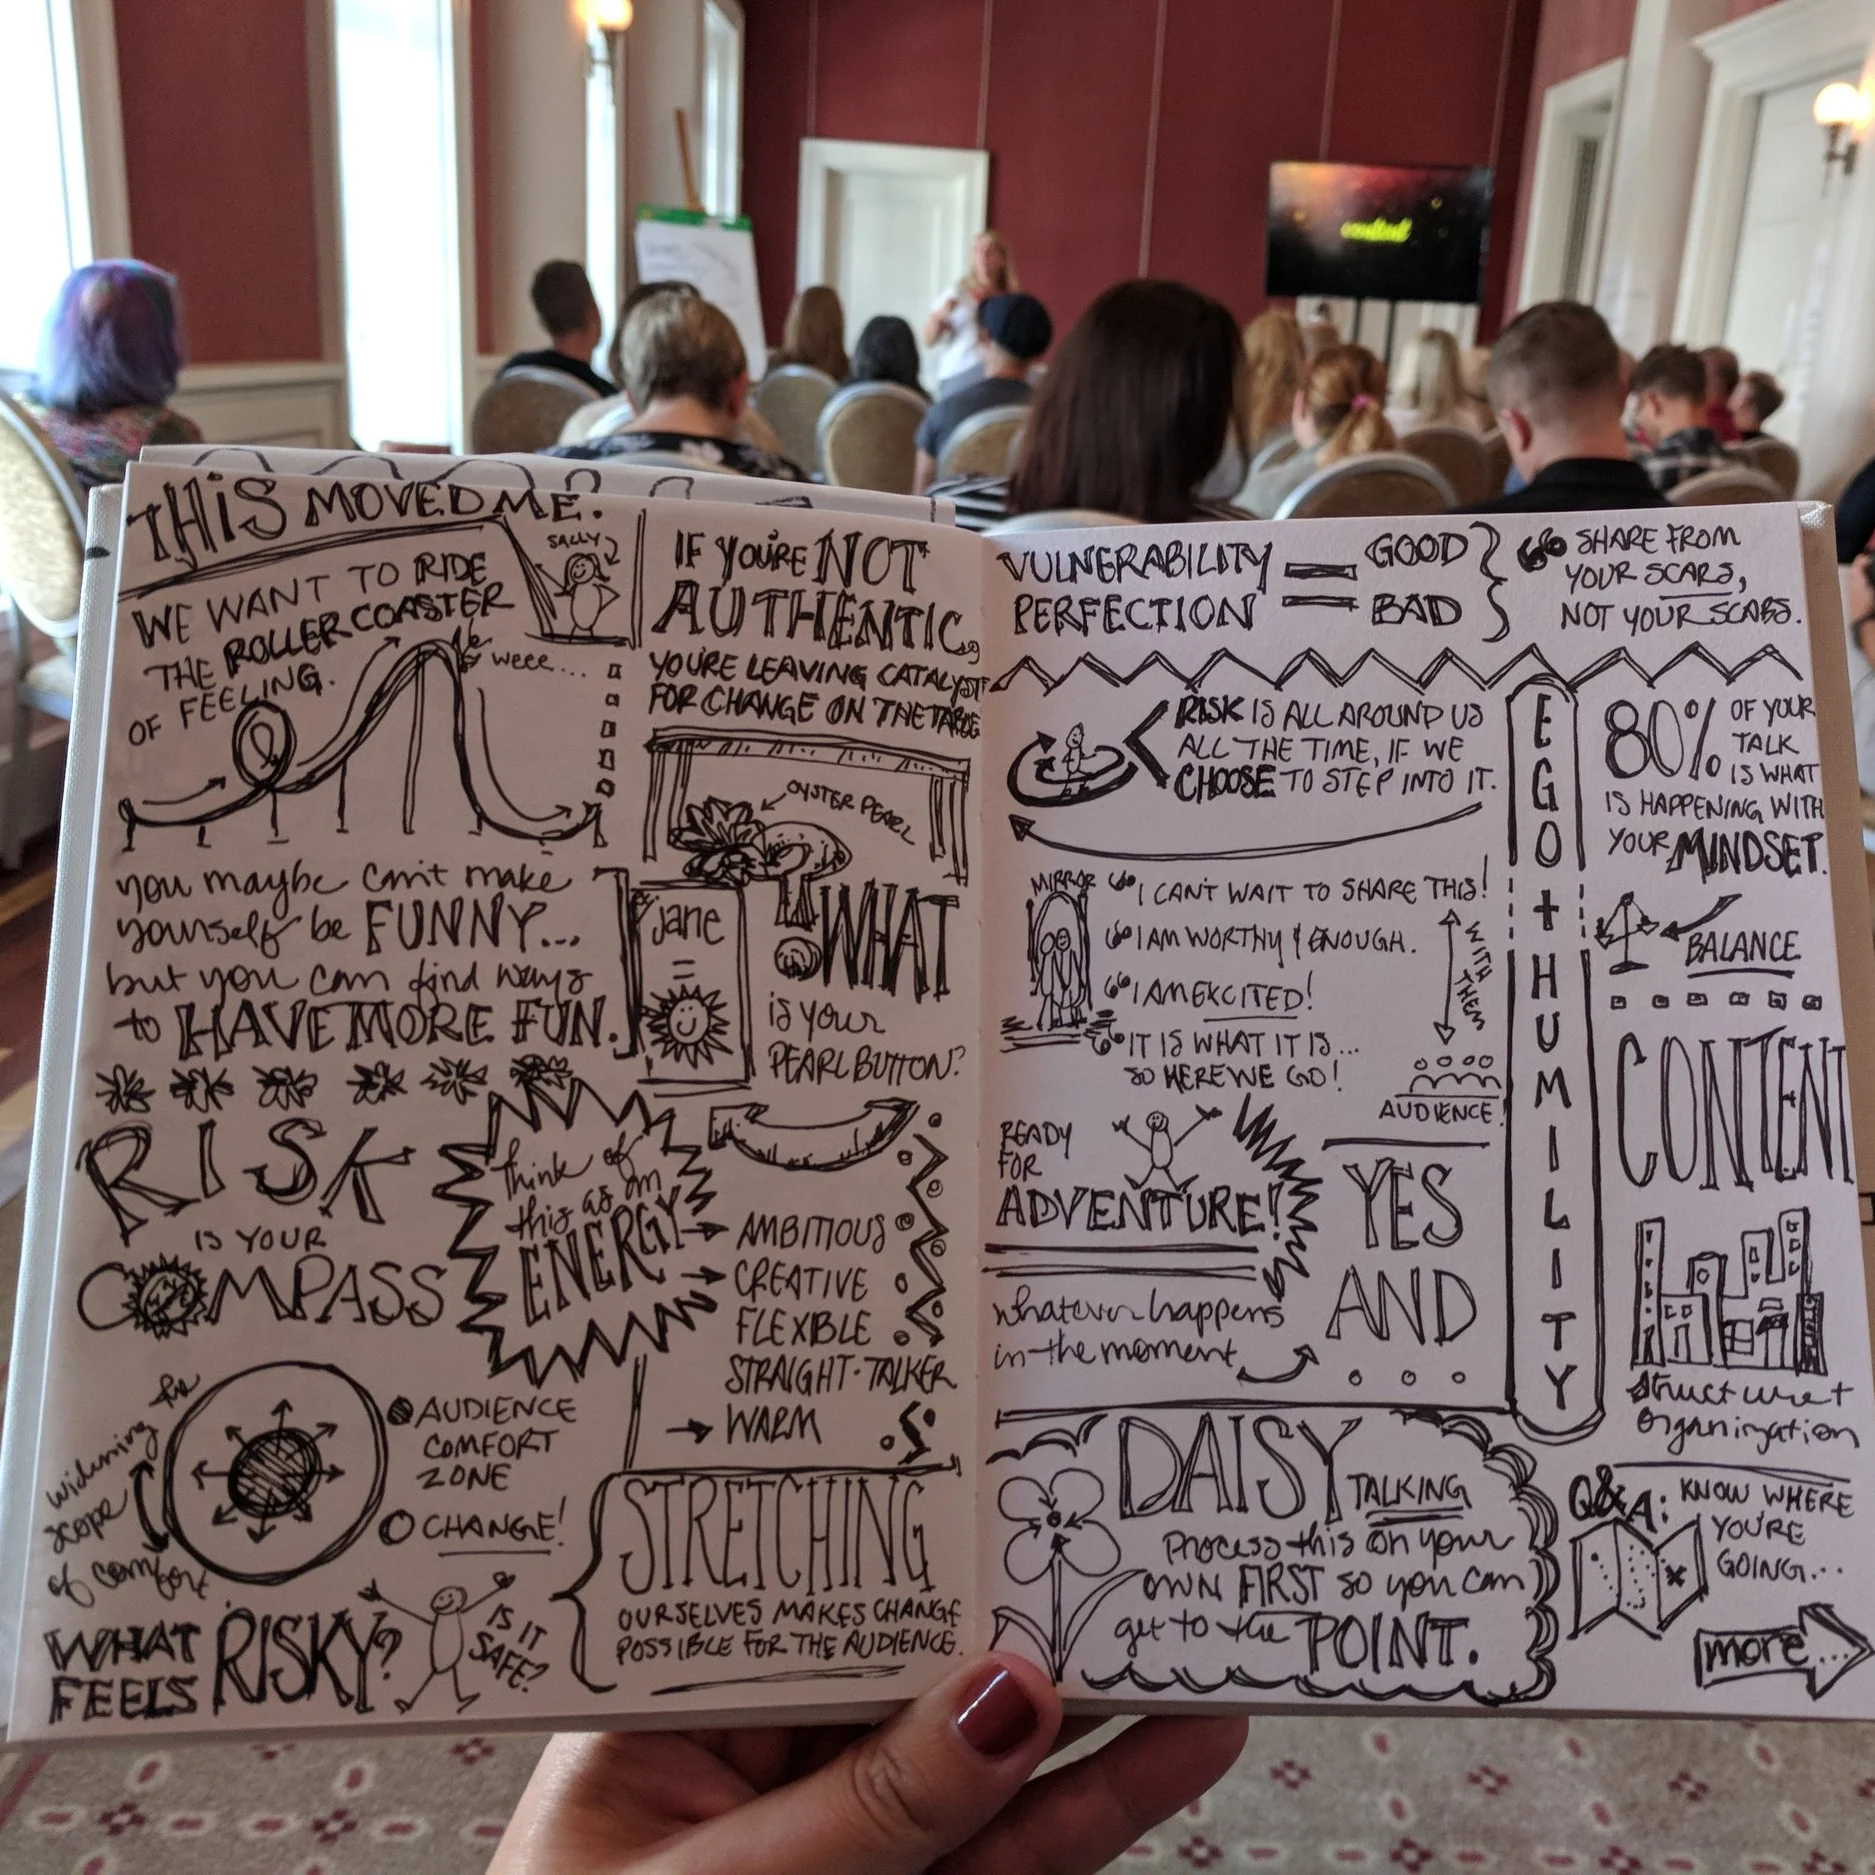 THIS MOVED ME.
SALLY
WE WANT TO RIDE
THE ROLLERCOASTER
OF FEELING.
weee...
you maybe can't make
yourself be FUNNY...
but you can find ways
to HAVE MORE FUN.
RISK
IS YOUR
COMPASS
widening the
scope
of comfort
AUDIENCE
COMFORT
ZONE
CHANGE!
WHAT
FEELS RISKY?
IS IT
SAFE?
IF YOU'RE NOT
AUTHENTIC,
YOU'RE LEAVING CATALYST
FOR CHANGE ON THE TABLE
OYSTER PEARL
jane
=
WHAT
is your
PEARL BUTTON?
think of
this as an
ENERGY
AMBITIOUS
CREATIVE
FLEXIBLE
STRAIGHT-TALKER
WARM
STRETCHING
OURSELVES MAKES CHANGE
POSSIBLE FOR THE AUDIENCE.
VULNERABILITY = GOOD
PERFECTION = BAD
SHARE FROM
YOUR SCARS,
NOT YOUR SCABS.
RISK IS ALL AROUND US
ALL THE TIME, IF WE
CHOOSE TO STEP INTO IT.
MIRROR
"I CAN'T WAIT TO SHARE THIS!
"I AM WORTHY & ENOUGH.
"I AM EXCITED!
"IT IS WHAT IT IS...
SO HERE WE GO!
WITH THEM
AUDIENCE!
READY
FOR
ADVENTURE!
whatever happens
in the moment
YES
AND
...
DAISY
TALKING
Process this on your
own FIRST so you can
get to the POINT.
EGO + HUMILITY
80% OF YOUR
TALK
IS WHAT
IS HAPPENING WITH
YOUR MINDSET.
BALANCE
CONTENT
structure +
organization
Q&A: KNOW WHERE
YOU'RE
GOING...
more...
content